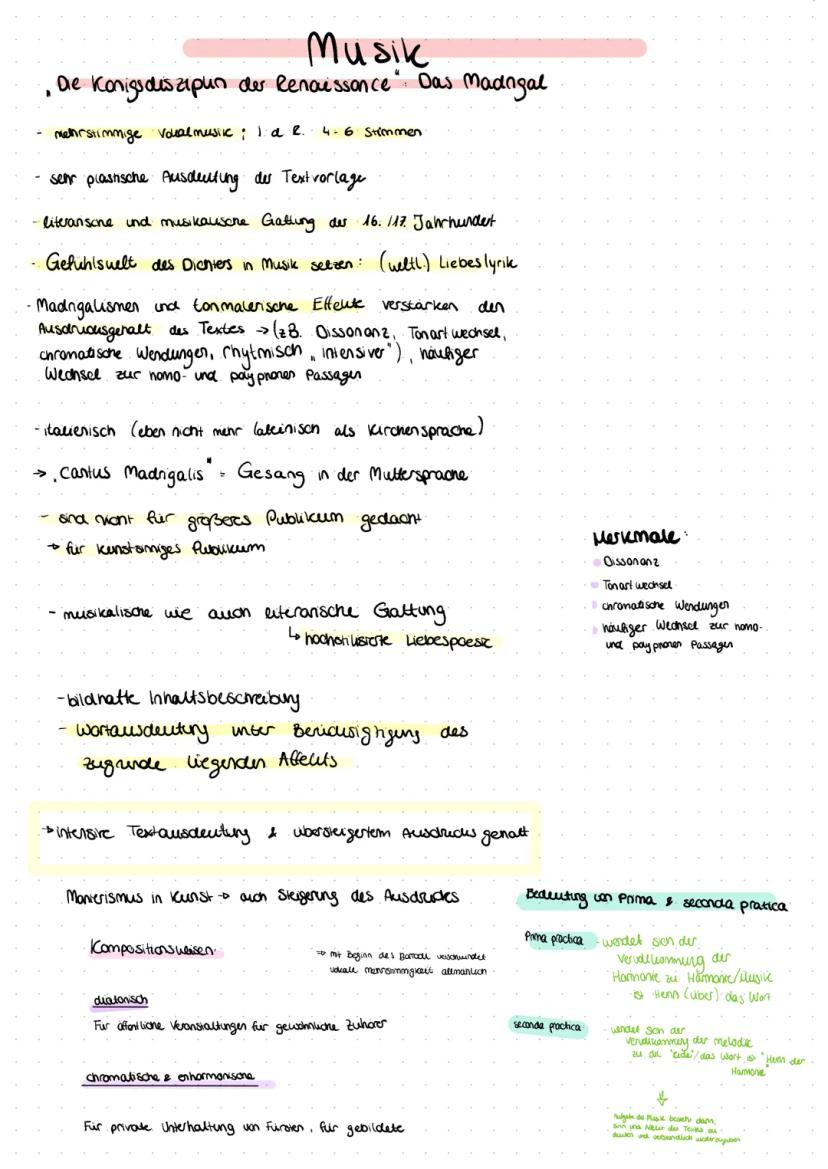 Musik
„Die Königsdisziplin der Renaissance": Das Madrigal
- mehrstimmige Vokalmusik ; i. d. R. 4-6 Stimmen
- sehr plastische Ausdeutung der Textvorlage
- literarische und musikalische Gattung der 16. /17. Jahrhundert
- Gefühlswelt des Dichters in Musik setzen: (weltl.) Liebeslyrik
- Madrigalismen und tonmalerische Effekte verstärken den
Ausdrucksgehalt des Textes → (z.B. Dissonanz, Tonartwechsel,
chromatische Wendungen, rhytmisch „intensiver"), häufiger
Wechsel zur homo- und polyphonen Passagen
- italienisch (eben nicht mehr lateinisch als Kirchensprache)
→ „Cantus Madrigalis" = Gesang in der Muttersprache
- sind nicht für größeres Publikum gedacht
→ für kunstsinniges Publikum
Merkmale:
Dissonanz
Tonartwechsel
chromatische Wendungen
häufiger Wechsel zur homo-
und polyphonen Passagen
- musikalische wie auch literarische Gattung
↳ hochstilisierte Liebespoesie
- bildhafte Inhaltsbeschreibung
- Wortausdeutung unter Berücksigtigung des
zugrunde liegenden Affekts
→ intensive Textausdeutung & übersteigertem Ausdrucksgehalt
Manierismus in Kunst → auch Steigerung des Ausdruckes
Kompositionsweisen:
⇒ mit Beginn des Barock verschwindet
vokale mehrstimmigkeit allmählich
diatonisch
Für öffentliche Veranstaltungen für gewöhnliche Zuhörer
chromatische & enharmonische
Für private Unterhaltung von Fürsten, für gebildete
Bedeutung von Prima & seconda pratica
Prima practica - wendet sich der
Vervollkommnung der
Harmonie zu: Harmonie/Musik
ist Herrin (über) das Wort
seconda practica: - wendet sich der
Vervollkommnung der melodik
zu die "Rede"/das Wort ist "Herrin der
Harmonie"
↓
Aufgabe der Musik besteht darin,
Sinn und Affekt des Textes zu
deuten und verständlich wiederzugeben